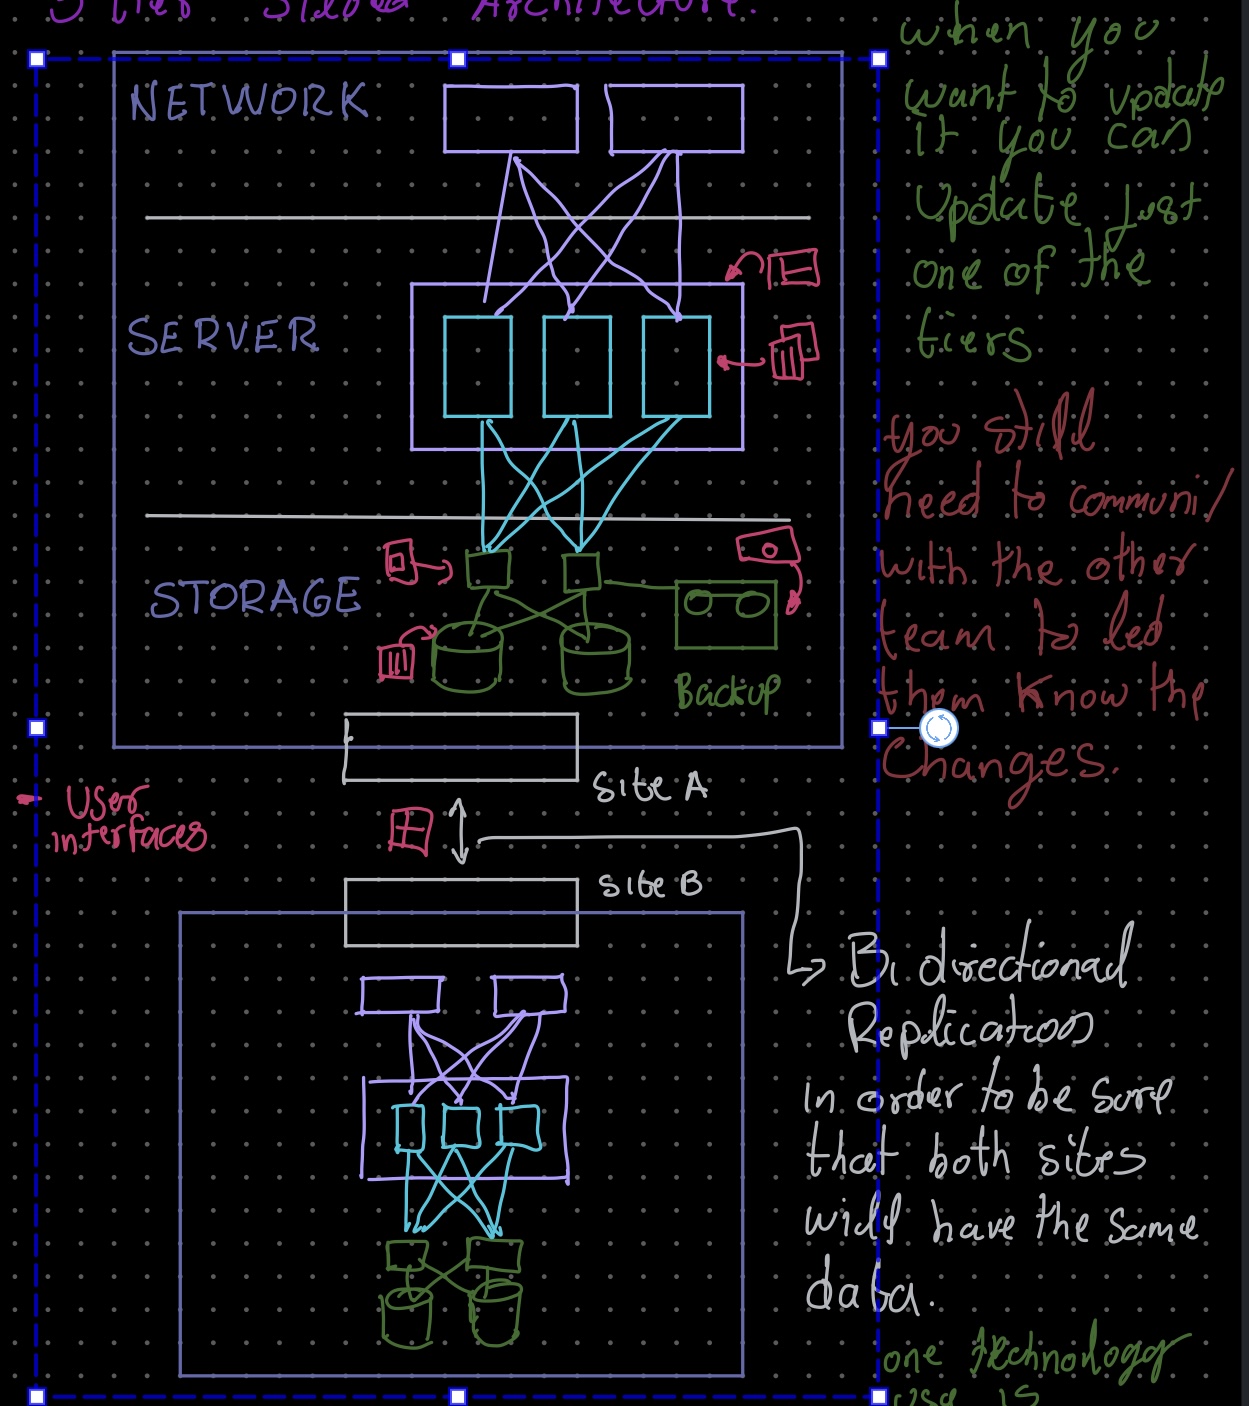 3 Tier Siloed Architecture.
NETWORK
SERVER
STORAGE
Backup
Site A
User
interfaces
Site B
when you
want to update
it you can
Update Just
one of the
tiers
you still
need to communi/
with the other
team to led
them know the
Changes.
Bi directional
Replication
in order to be sure
that both sites
will have the same
data.
one technology
use is